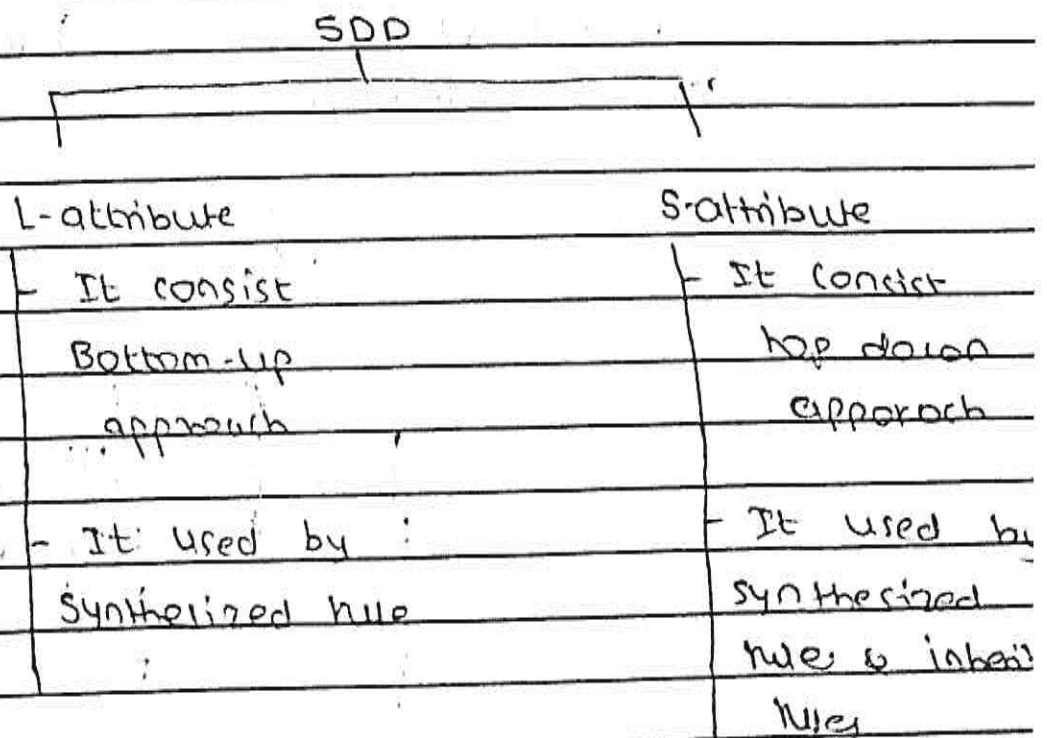 SDD
L-attribute
- It consist
Bottom-up
approach
- It used by
Synthesized rule
S-attribute
- It Consist
top down
apporoch
- It used by
synthesized
rule &
rules